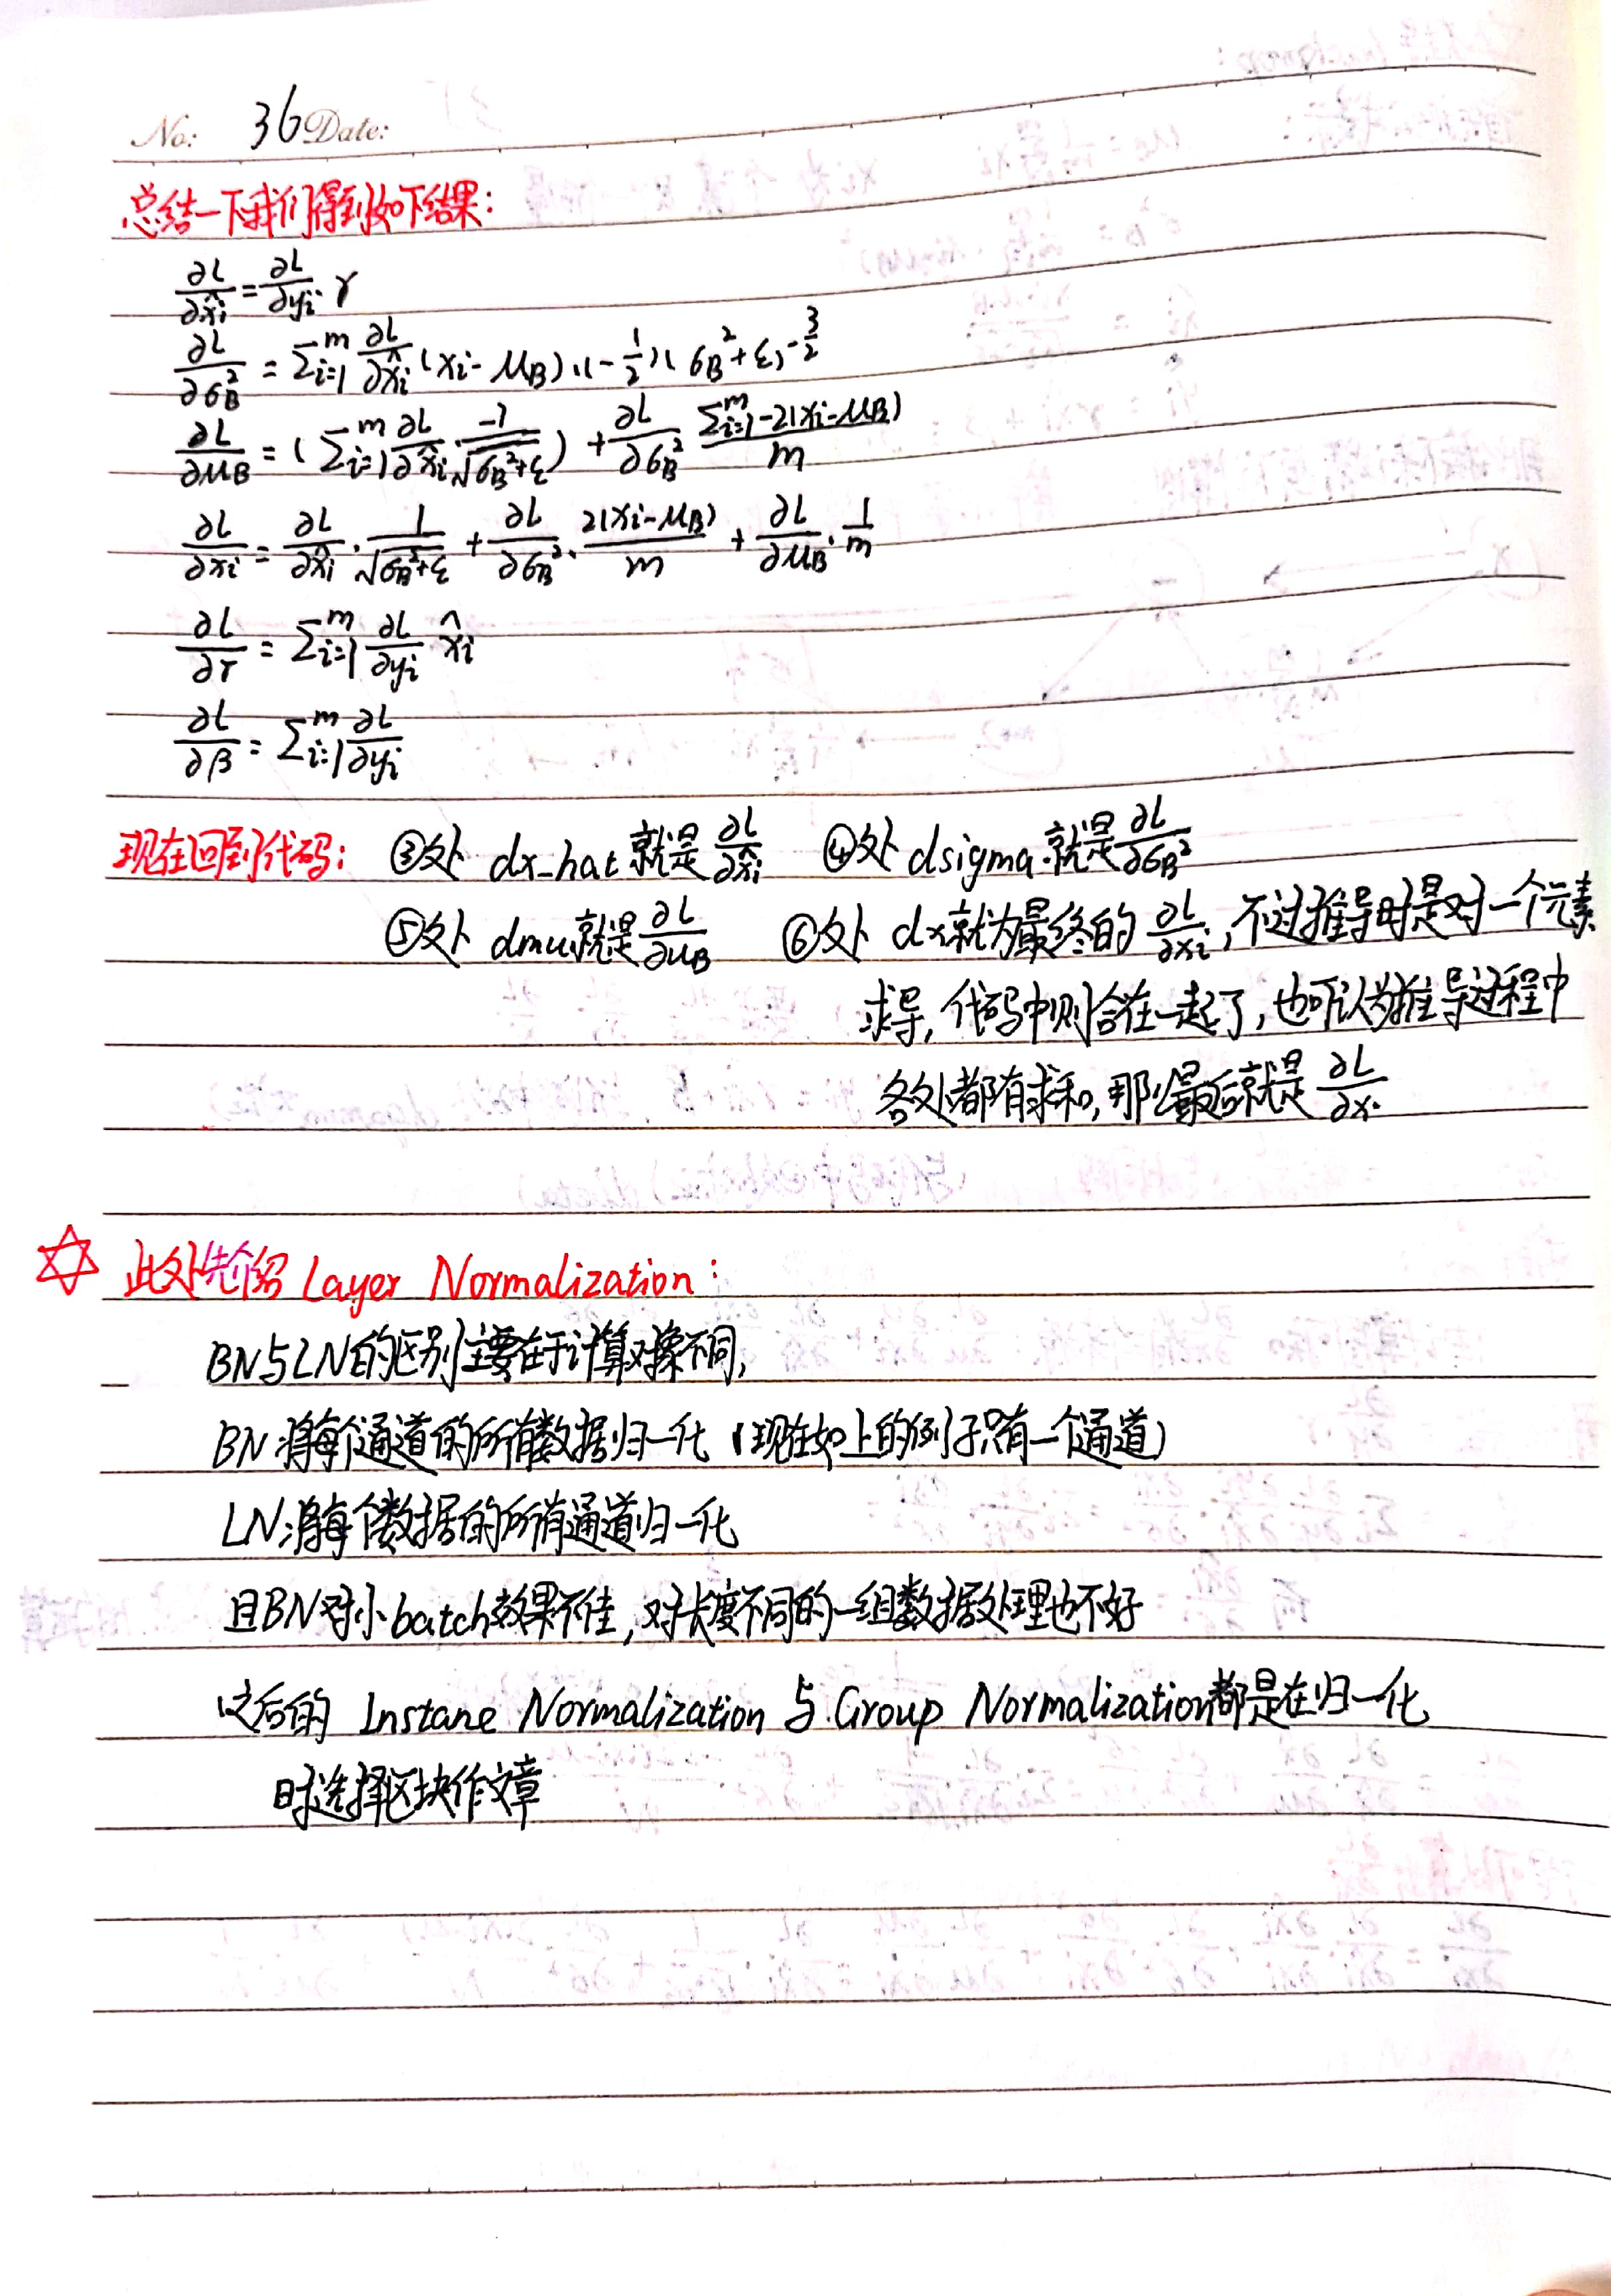 No: 36 Date:
总结一下我们得到如下结果:
∂L/∂x̂i = ∂L/∂yi · γ
∂L/∂σB² = Σi=1^m ∂L/∂x̂i (xi - μB)·(-1/2)(σB²+ε)^-3/2
∂L/∂μB = (Σi=1^m ∂L/∂x̂i · -1/√(σB²+ε)) + ∂L/∂σB² · Σi=1^m -2(xi-μB)/m
∂L/∂xi = ∂L/∂x̂i · 1/√(σB²+ε) + ∂L/∂σB² · 2(xi-μB)/m + ∂L/∂μB · 1/m
∂L/∂γ = Σi=1^m ∂L/∂yi x̂i
∂L/∂β = Σi=1^m ∂L/∂yi
现在回到代码: ③处 dx_hat 就是 ∂L/∂x̂i ④处 dsigma 就是 ∂L/∂σB²
⑤处 dmu就是 ∂L/∂μB ⑥处 dx就为最终的 ∂L/∂xi, 不过推导时是对一个元素
求导, 代码中则合在一起了, 也可认为推导过程中
各处都有求和, 那么最后就是 ∂L/∂x.
此处先介绍 Layer Normalization:
BN与LN的区别主要在于计算对象不同,
BN将每个通道的所有数据归一化 (现在如上的例子只有一个通道)
LN将每个数据的所有通道归一化
且BN对小batch效果不佳, 对长度不同的一组数据处理也不好
之后的 Instane Normalization 与 Group Normalization都是在归一化
时选择区块作文章